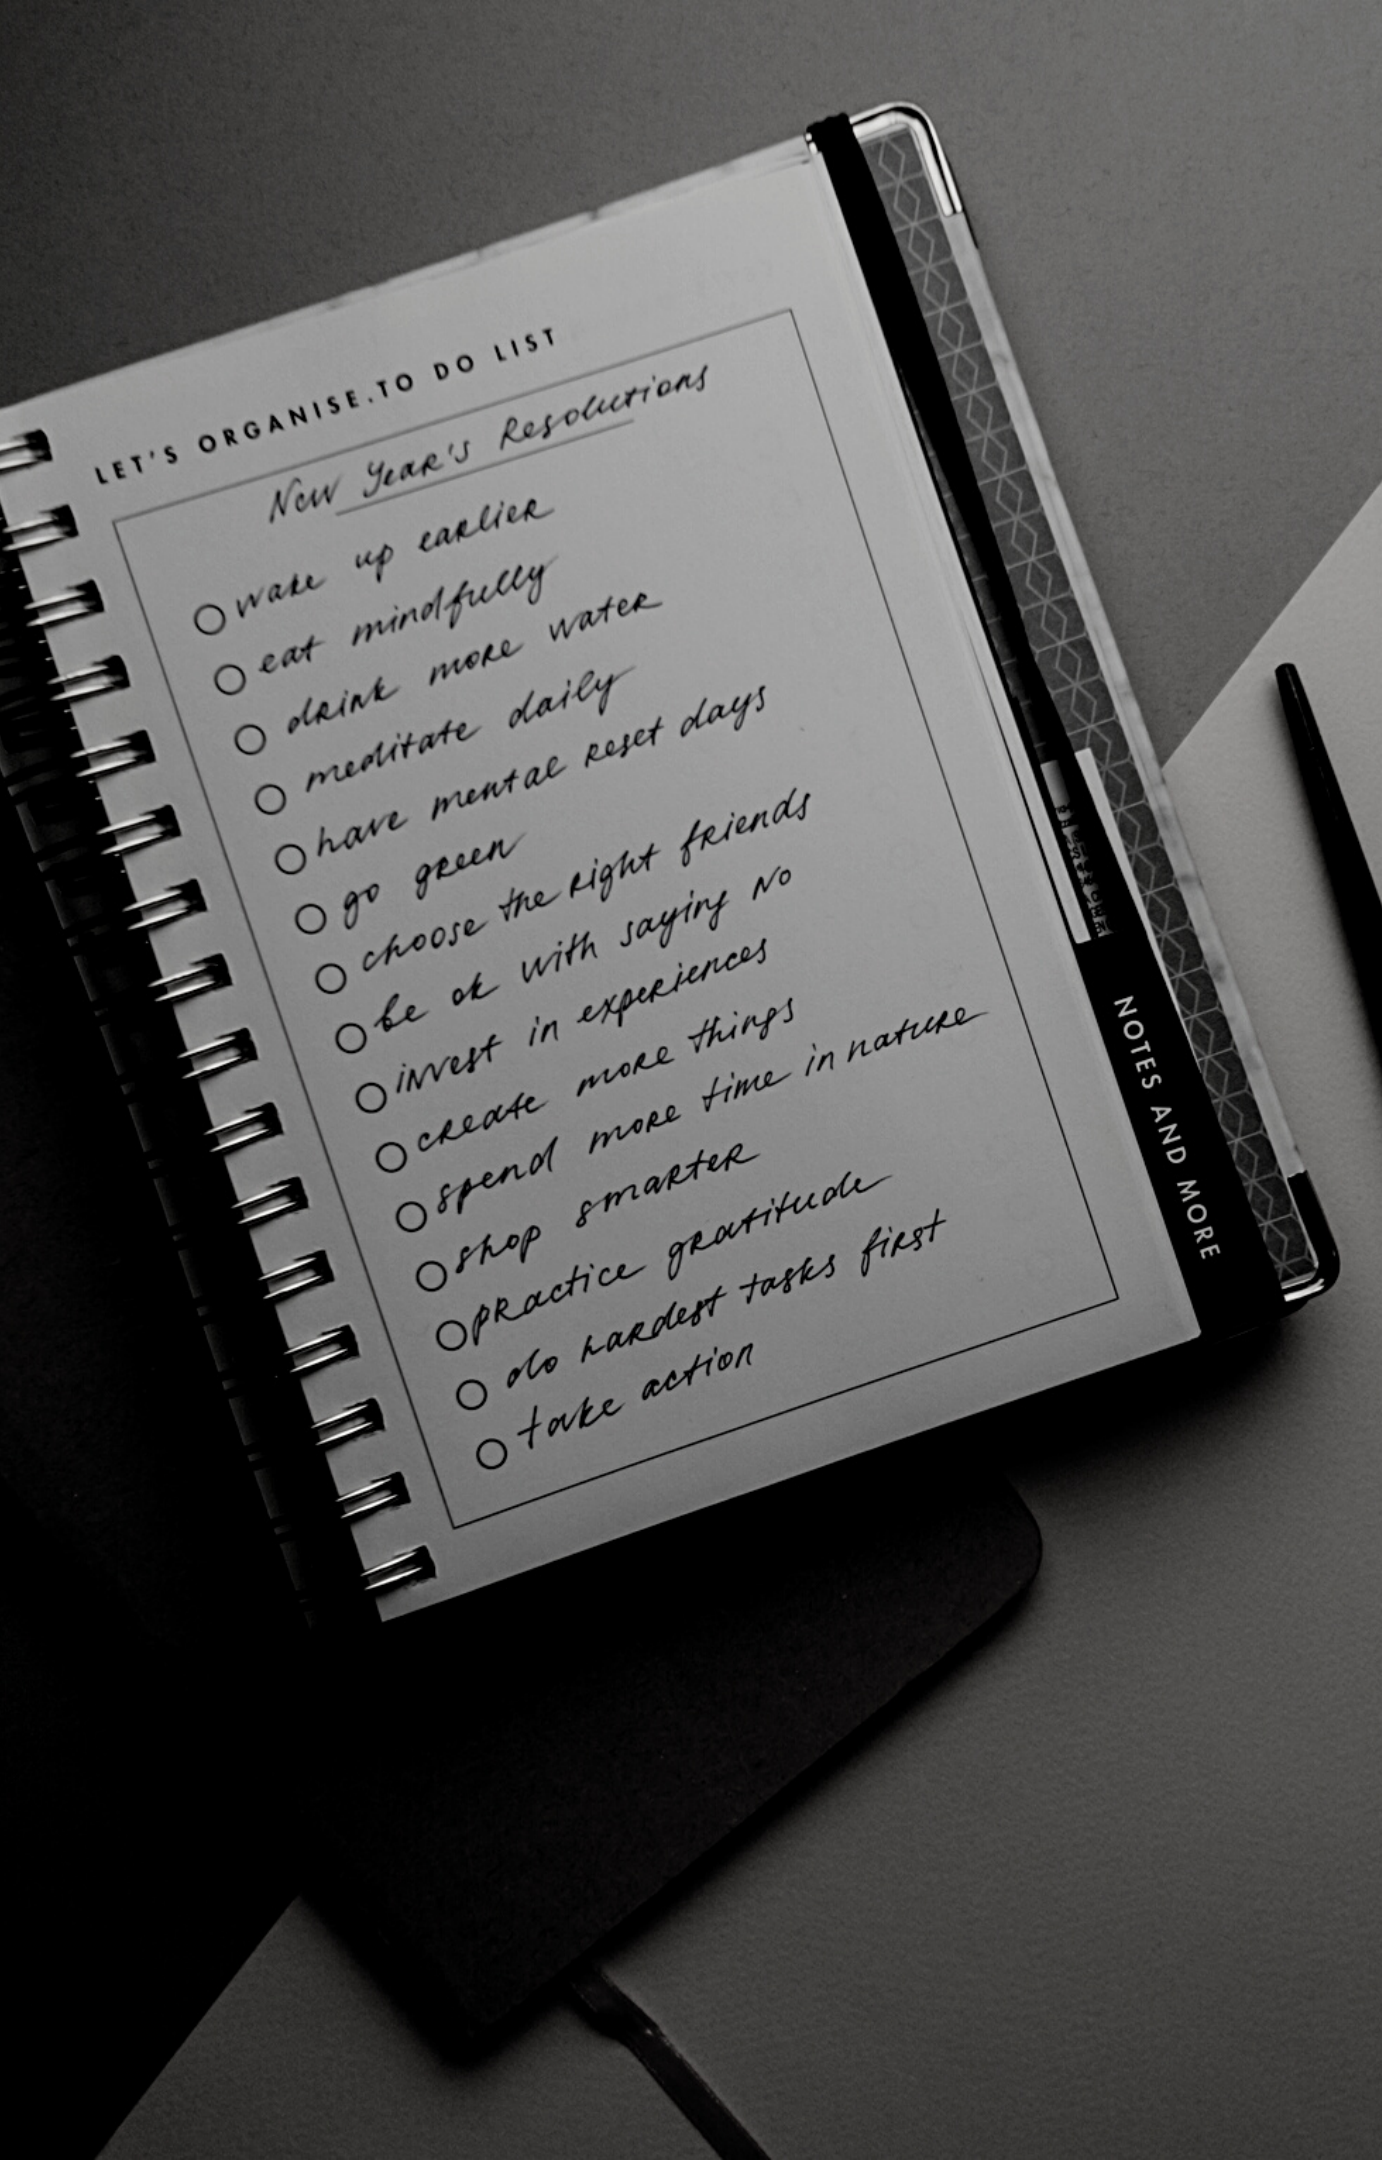 LET'S ORGANISE.TO DO LIST
New Year's Resolutions
wake up earlier
eat mindfully
drink more water
meditate daily
have mental reset days
go green
choose the right friends
be ok with saying No
invest in experiences
create more things
spend more time in nature
shop smarter
practice gratitude
do hardest tasks first
take action
NOTES AND MORE